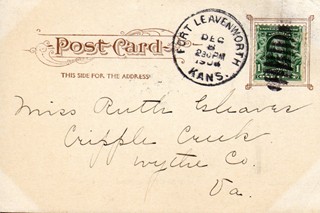 Post Card
THIS SIDE FOR THE ADDRESS.
FORT LEAVENWORTH
DEC
8
230PM
KANS.
Miss Ruth Cleaves
Cripple Creek
Wythe Co.
Va.